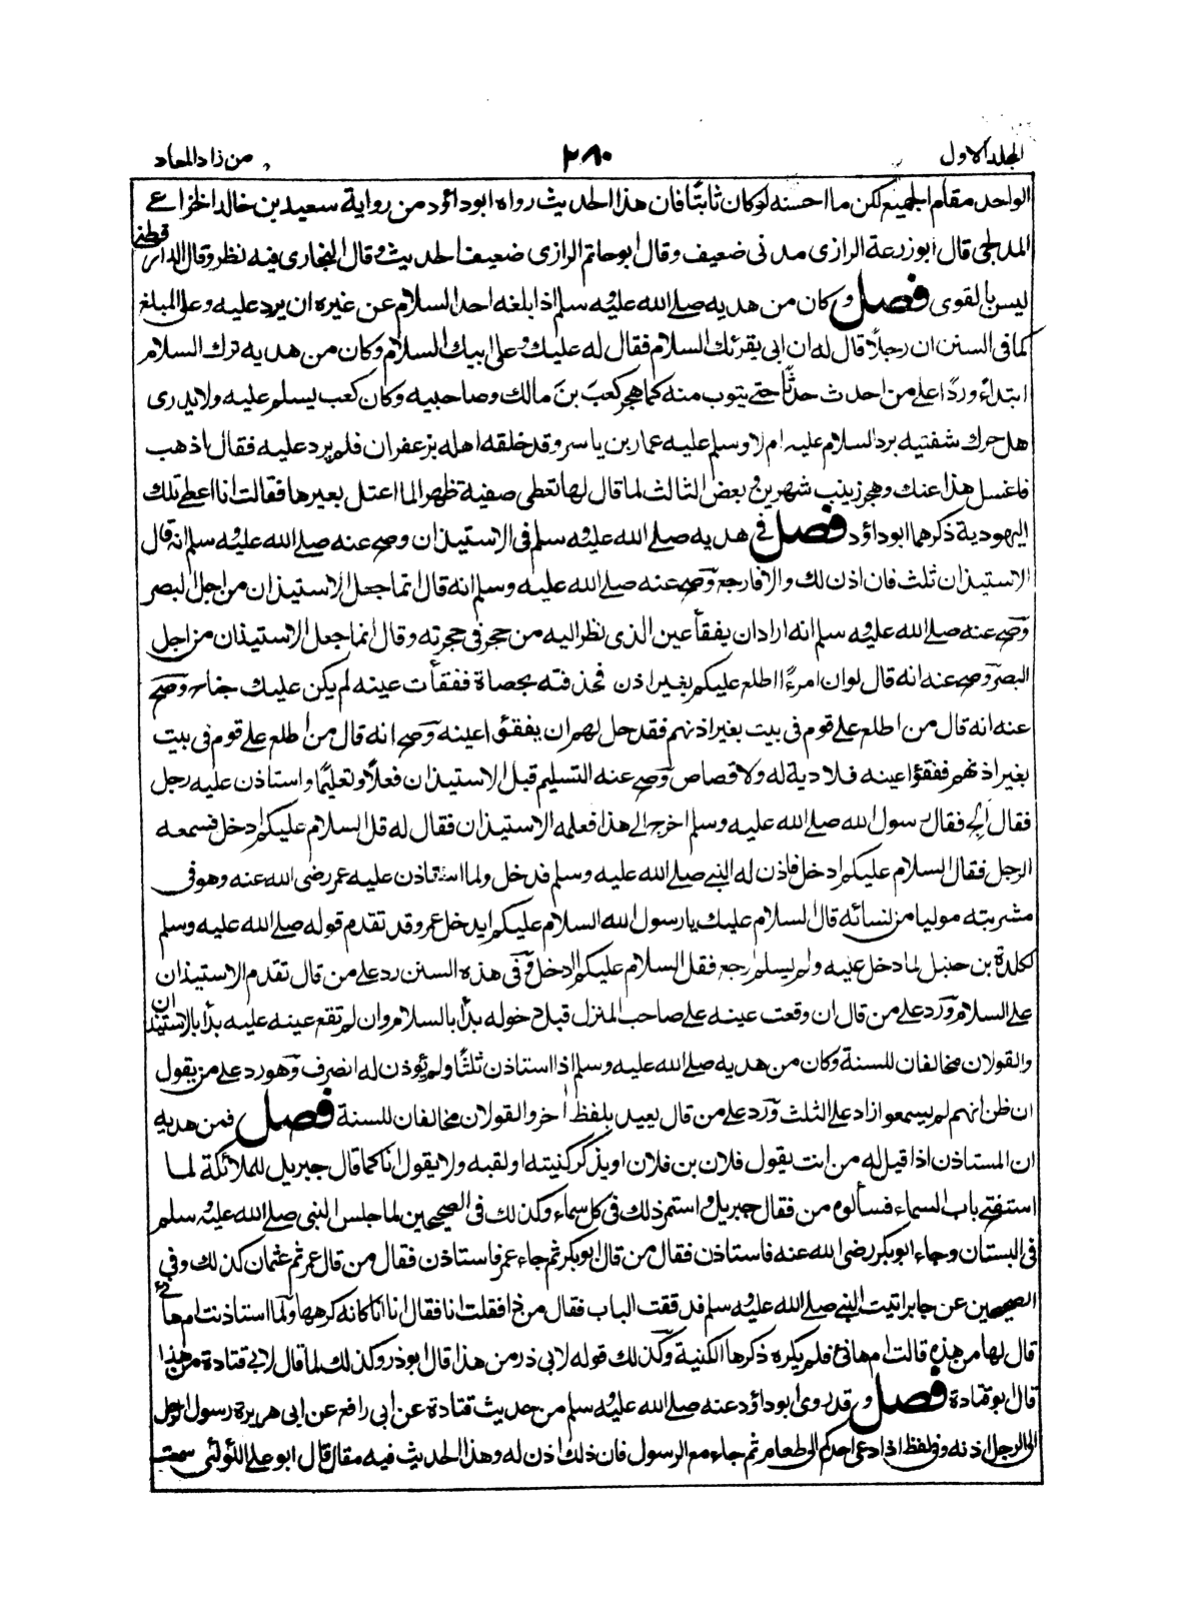 المجلد الاول
٢٨٠
من زاد المعاد
الواحد مقام الجميع لكن ما احسنه لوكان ثابتًا فان هذا الحديث رواه ابوداؤد من رواية سعيد بن خالد الخزاعے
المدلجى قال ابوزرعة الرازى مدنى ضعيف وقال ابوحاتم الرازى ضعيف الحديث وقال البخارى فيه نظر وقال الدارقطنے
ليس بالقوى فصل وكان من هديه صلے الله عليه وسلم اذا بلغه احد السلام عن غيره ان يرد عليه وعلى المبلغ
كما فى السنن ان رجلًا قال له ان ابى يقرئك السلام فقال له عليك وعلى ابيك السلام وكان من هديه ترك السلام
ابتداءً وردًا على من احدث حدثًا حتے يتوب منه كما هجر كعب بن مالك وصاحبيه وكان كعب يسلم عليه ولا يدرى
هل حرك شفتيه برد السلام عليه ام لا وسلم عليه عمار بن ياسر وقد خلقه اهله بزعفران فلم يرد عليه فقال اذهب
فاغسل هذا عنك وهجر زينب شهرين و بعض الثالث لما قال لها تعطى صفية ظهرا لما اعتل بعيرها فقالت انا اعطے تلك
اليهودية ذكرهما ابوداؤد فصل فى هديه صلے الله عليه وسلم فى الاستيذان وصح عنه صلے الله عليه وسلم انه قال
الاستيذان ثلث فان اذن لك والا فارجع وصح عنه صلے الله عليه وسلم انه قال انما جعل الاستيذان من اجل البصر
وصح عنه صلے الله عليه وسلم انه اراد ان يفقأ عين الذى نظر اليه من حجر فى حجرته وقال انما جعل الاستيذان من اجل
البصر وصح عنه انه قال لو ان امرءًا اطلع عليكم بغير اذن فحذفته بحصاة ففقأت عينه لم يكن عليك جناح وصح
عنه انه قال من اطلع على قوم فى بيت بغير اذنهم فقد حل لهم ان يفقؤا عينه وصح انه قال من اطلع على قوم فى بيت
بغير اذنهم ففقؤا عينه فلا دية له ولا قصاص وصح عنه التسليم قبل الاستيذان فعلًا وتعليمًا واستاذن عليه رجل
فقال أألج فقال رسول الله صلے الله عليه وسلم اخرج الى هذا فعلمه الاستيذان فقال له قل السلام عليكم ادخل فسمعه
الرجل فقال السلام عليكم ادخل فاذن له النبے صلے الله عليه وسلم فدخل ولما استاذن عليه عمر رضى الله عنه وهو فى
مشربته موليا من نسائه قال السلام عليك يا رسول الله السلام عليكم ايدخل عمر وقد تقدم قوله صلے الله عليه وسلم
لكلدة بن حنبل لما دخل عليه ولم يسلم ارجع فقل السلام عليكم ادخل وفى هذه السنن رد على من قال تقدم الاستيذان
على السلام ورد على من قال ان وقعت عينه على صاحب المنزل قبل دخوله بدأ بالسلام وان لم تقع عينه عليه بدأ بالاستيذان
والقولان مخالفان للسنة وكان من هديه صلے الله عليه وسلم اذا استاذن ثلثًا ولم يؤذن له انصرف وهو رد على من يقول
ان ظن انهم لم يسمعوا زاد على الثلث ورد على من قال يعيد بلفظ اخر والقولان مخالفان للسنة فصل فمن هديه
ان المستاذن اذا قيل له من انت يقول فلان بن فلان او يذكر كنيته او لقبه ولا يقول انا كما قال جبريل للملائكة لما
استفتح باب السماء فسألوه من فقال جبريل واستمر ذلك فى كل سماء وكذلك فى الصحيحين لما جلس النبى صلے الله عليه وسلم
فى البستان وجاء ابوبكر رضى الله عنه فاستاذن فقال من قال ابوبكر ثم جاء عمر فاستاذن فقال من قال عمر ثم عثمان كذلك وفى
الصحيحين عن جابر اتيت النبے صلے الله عليه وسلم فدققت الباب فقال من ذا فقلت انا فقال انا انا كانه كرهها ولما استاذنت ام هانئ
قال لها من هذه قالت ام هانئ فلم يكره ذكرها الكنية وكذلك قوله لابى ذر من هذا قال ابوذر وكذلك لما قال لابى قتادة من هذا
قال ابوقتادة فصل وقد روى ابوداؤد عنه صلے الله عليه وسلم من حديث قتادة عن ابى رافع عن ابى هريرة رسول الرجل
الى الرجل اذنه وفى لفظ اذا دعى احدكم الى طعام ثم جاء مع الرسول فان ذلك اذن له وهذا الحديث فيه مقال قال ابوعلے اللؤلئى سمعت